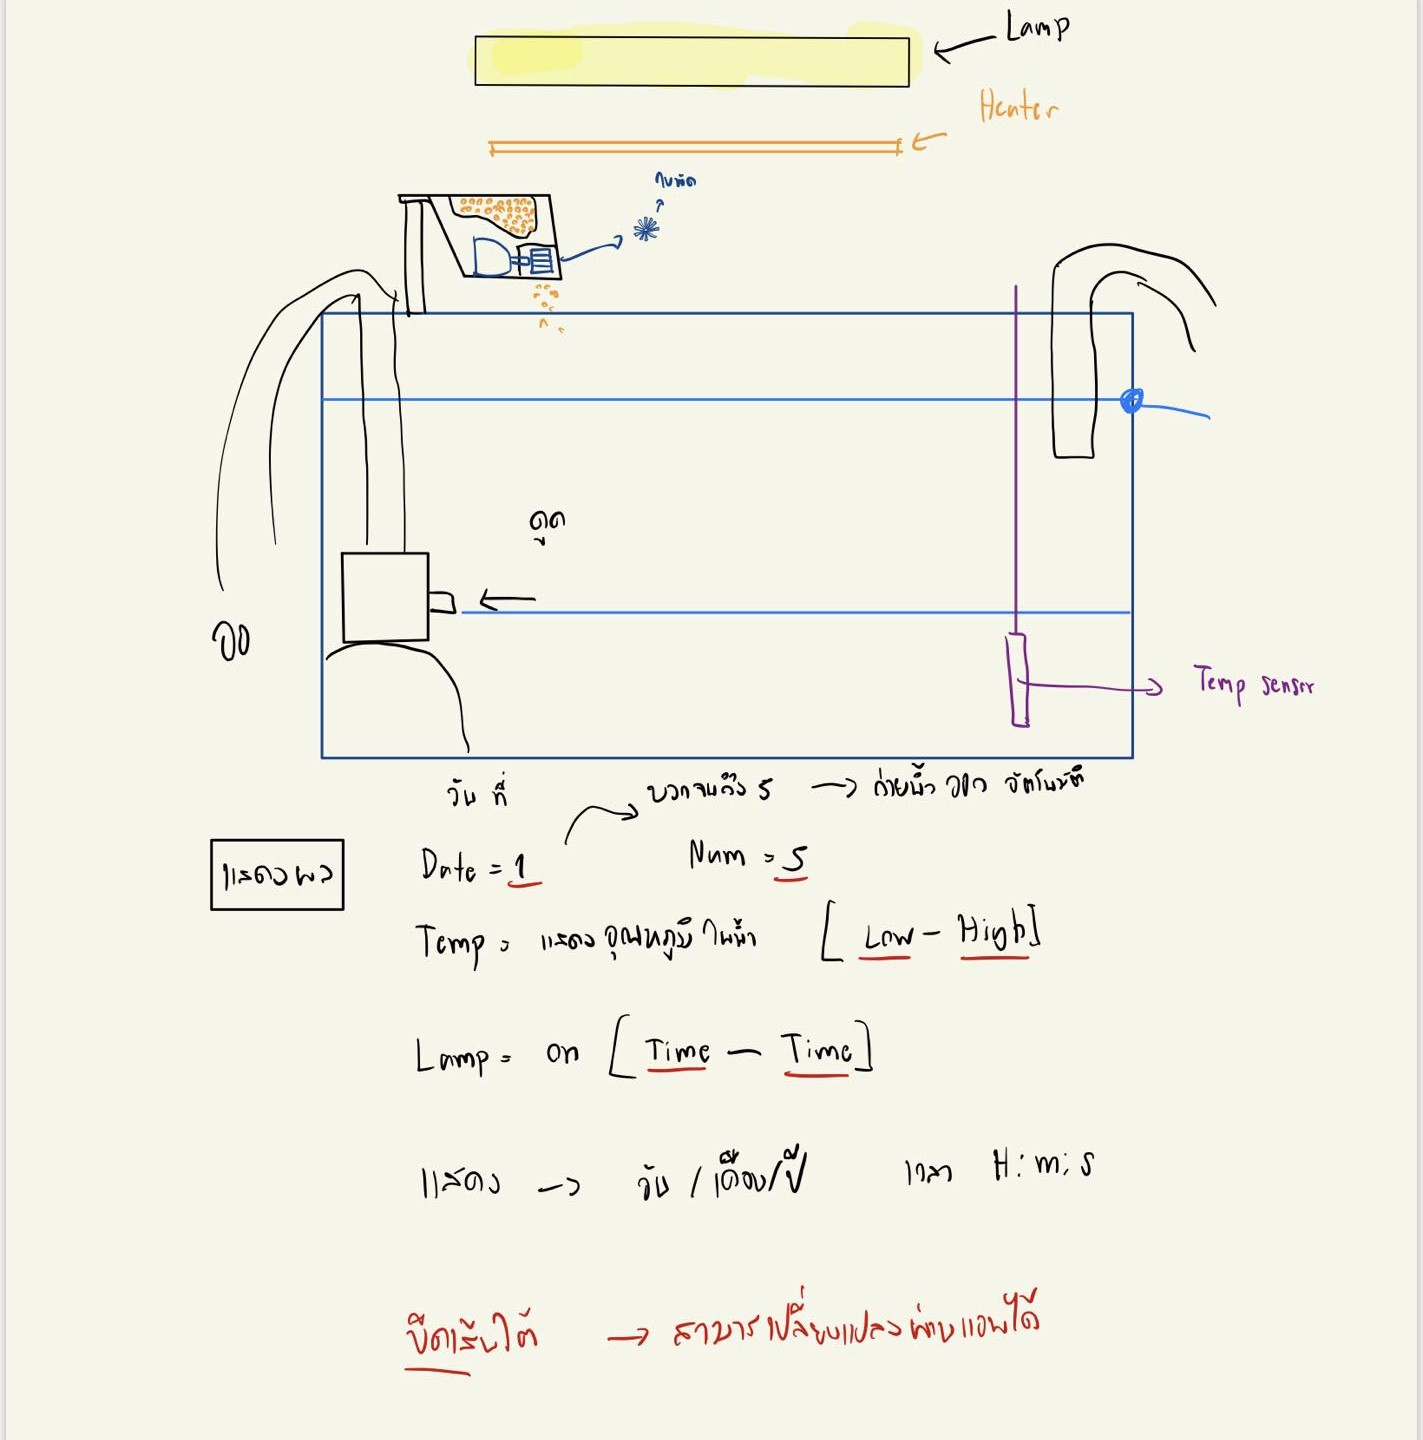 Lamp
Heater
ใบพัด
ดูด
ออ
Temp sensor
วัน ที่ บวกจนถึง 5 → ถ่ายน้ำ ออก อัตโนมัติ
แสดงผล
Date = 1 Num = 5
Temp = แสดง อุณหภูมิ ในน้ำ [Low - High]
Lamp = on [Time - Time]
แสดง → วัน / เดือน / ปี เวลา H : m : s
ขีดเส้นใต้ → สามาร เปลี่ยนแปลงผ่านแอพได้